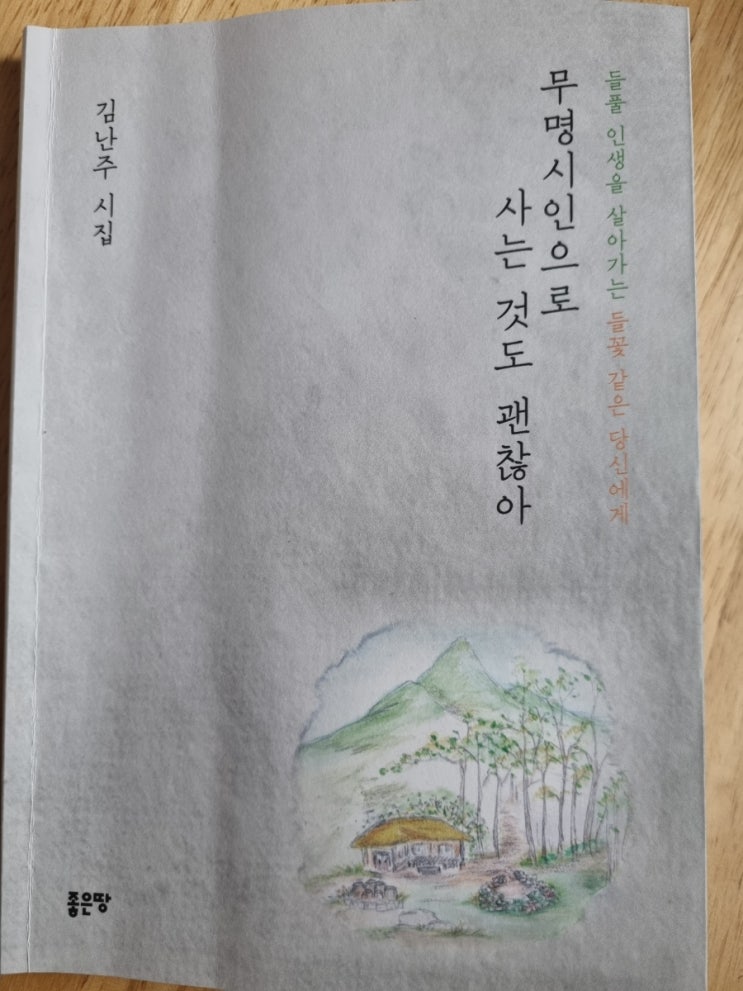 들풀 인생을 살아가는 들꽃 같은 당신에게
무명시인으로
사는 것도 괜찮아
김난주 시집
좋은땅